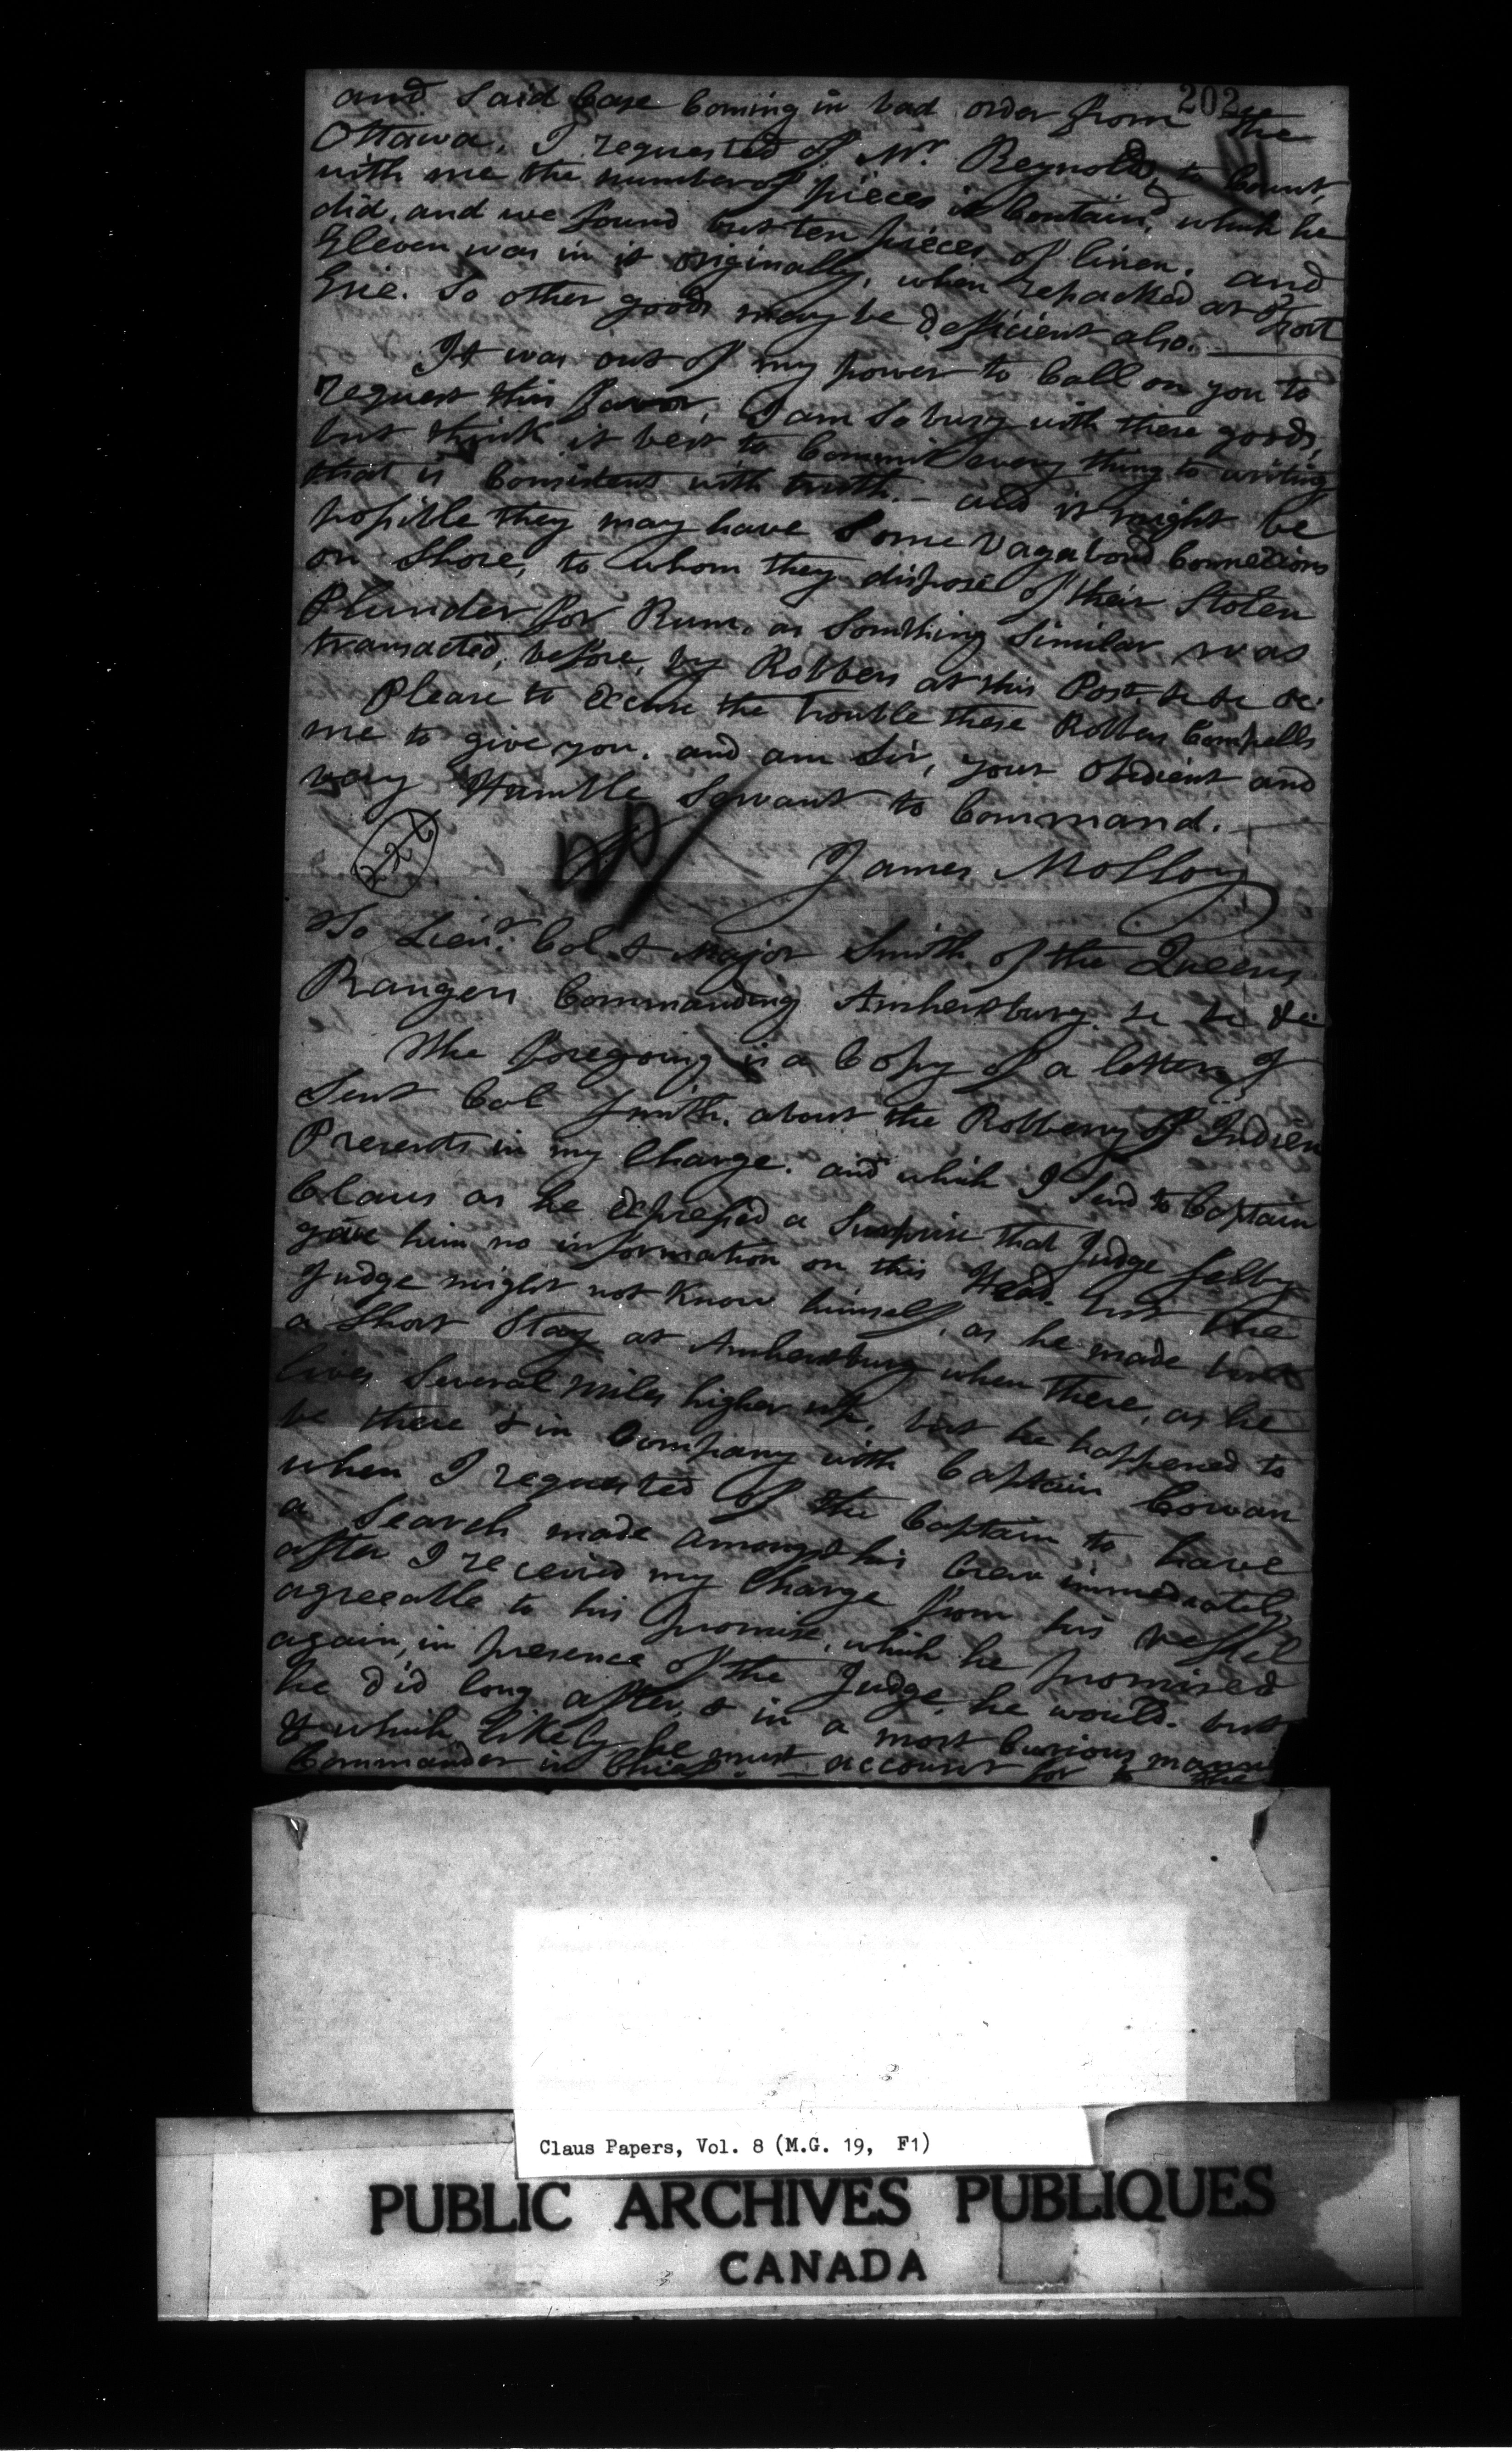 202
and said Case Coming in bad order from the
Ottawa. I requested of Mr. Reynolds, to Count,
with me the number of pieces it Contain'd, which he
did, and we found but ten pieces of linen. and
Eleven was in it originally, when repacked at Fort
Erie. So other goods may be deficient also.
It was out of my power to Call on you to
request this favor, I am So busy with these goods,
but think it best to Commit every thing to writing
that is Consistent with truth. and it might be
possible they may have Some Vagabond Connections
on Shore, to whom they dispose of their Stolen
Plunder for Rum, as Somthing Similar was
transacted, before, by Robbers at this Post. &c &c &c
Please to Excuse the trouble these Robbers Compells
me to give you. and am Sir, your Obedient and
very Humble Servant to Command.
James Molloy
To Lieut. Col. & Major Smith of the Queens
Rangers Commanding Amherstburg. &c &c &c
The foregoing is a Copy of a letter I
Sent Col Smith. about the Robbery of Indien
Presents in my Charge. and which I Send to Captain
Claus as he Expressed a Surprise that Judge Selby
gave him no information on this Head. but the
Judge might not Know himself, as he made but
a Short Stay at Amherstburg when there, as he
lives Several miles higher up, but he happened to
be there & in Company with Captain Cowan
when I requested of the Captain to have
a Search made amongst his Crew immediately
after I received my Charge from his Vessel
agreeable to his promise, which he promised
again, in presence of the Judge, he would. but
he did long after, & in a most Curious manner
& which likely he must account for to the
Commander in Chief.
Claus Papers, Vol. 8 (M.G. 19, F1)
PUBLIC ARCHIVES PUBLIQUES
CANADA